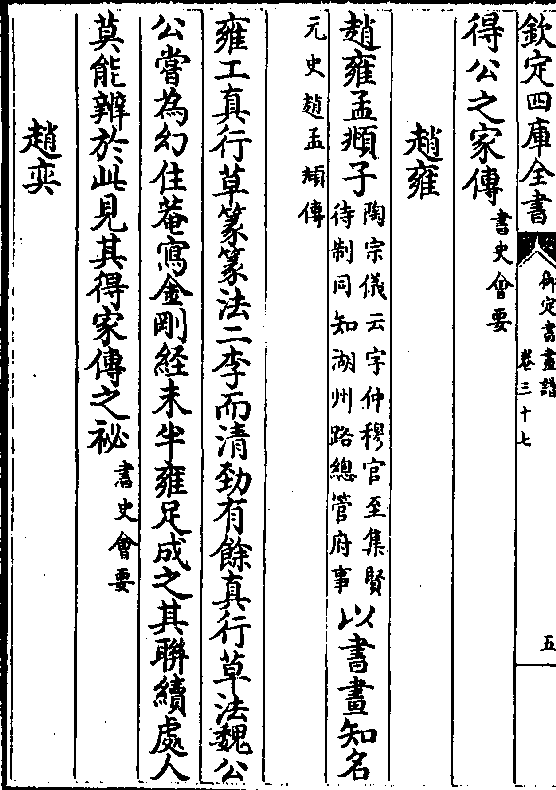 欽定四庫全書
御定書畫譜
卷三十七
五
得公之家傳書史會要
趙雍
趙雍孟頫子陶宗儀云字仲穆官至集賢
待制同知湖州路總管府事以書畫知名
元史趙孟頫傳
雍工真行草篆篆法二李而清勁有餘真行草法魏公
公嘗為幻住菴寫金剛経未半雍足成之其聯續處人
莫能辨於此見其得家傳之祕書史會要
趙奕